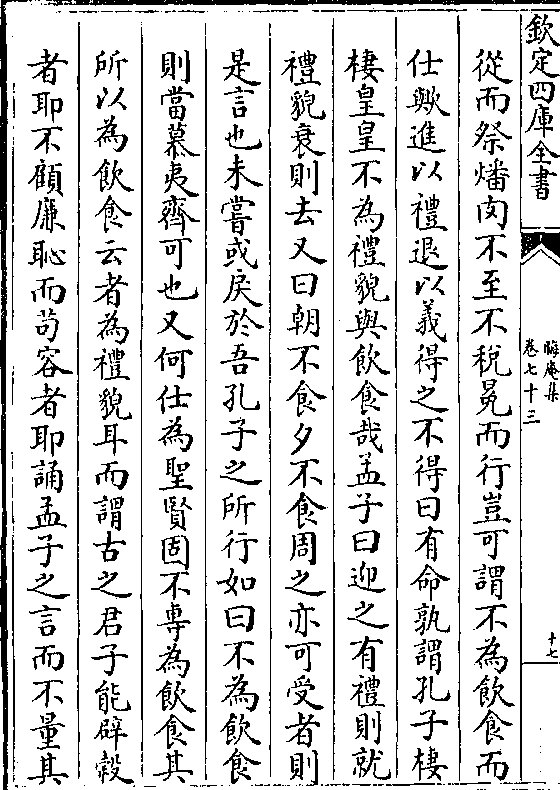 欽定四庫全書
晦庵集
卷七十三
十七
從而祭燔肉不至不稅冕而行豈可謂不為飲食而
仕歟進以禮退以義得之不得曰有命孰謂孔子棲
棲皇皇不為禮貌與飲食哉孟子曰迎之有禮則就
禮貌衰則去又曰朝不食夕不食周之亦可受者則
是言也未嘗或戾於吾孔子之所行如曰不為飲食
則當慕夷齊可也又何仕為聖賢固不專為飲食其
所以為飲食云者為禮貌耳而謂古之君子能辟穀
者耶不顧廉恥而苟容者耶誦孟子之言而不量其